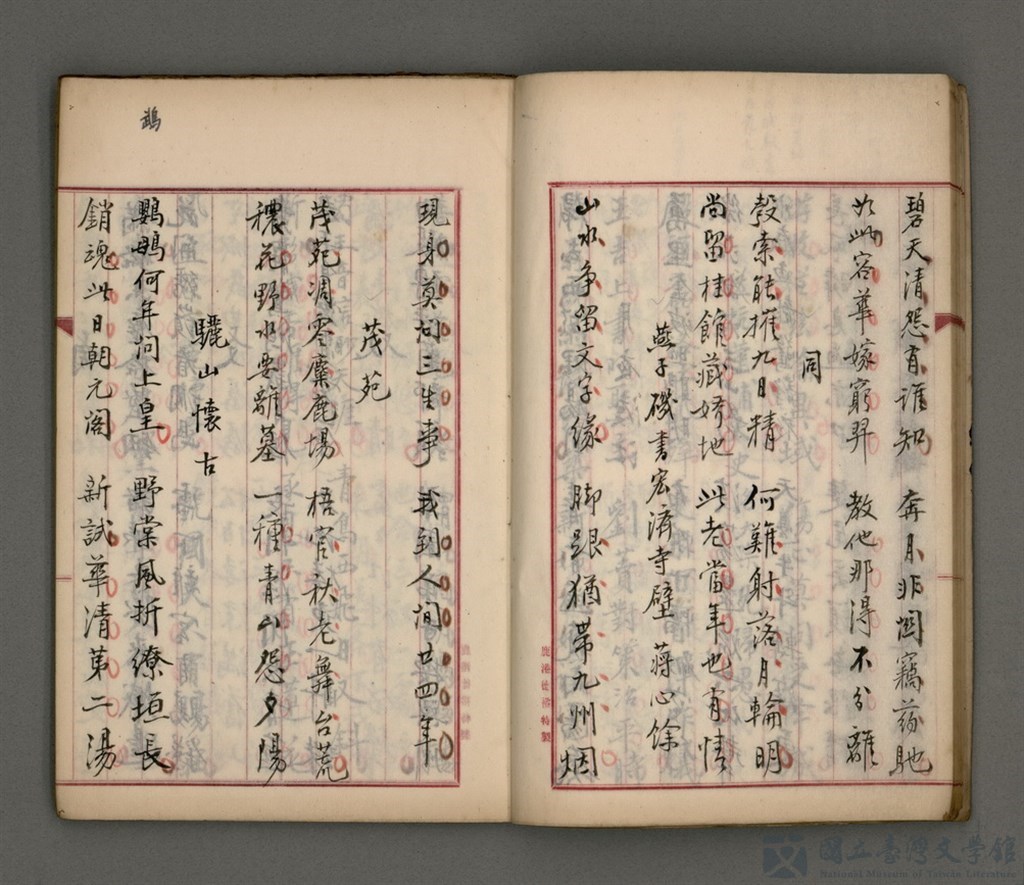 碧天清怨有誰知　奔月非關竊葯馳
如此容華嫁窮羿　教他那得不分離
同
彀索能摧九日精　何難射落月輪明
尚留桂館藏嬌地　此老當年也有情
燕子磯書宏濟寺壁　蔣心餘
山水爭留文字緣　脚跟猶帶九州烟
鹿港
特製
現身莫問三生事　我到人間廿四年
茂苑
茂苑凋零麋鹿場　梧宮秋老舞台荒
穠花野水要離墓　一種青山怨夕陽
驪山懷古
鸚鵡何年問上皇　野棠風折繚垣長
銷魂此日朝元閣　新試華清第二湯
鵡
國立臺灣文學館
National Museum of Taiwan Literature